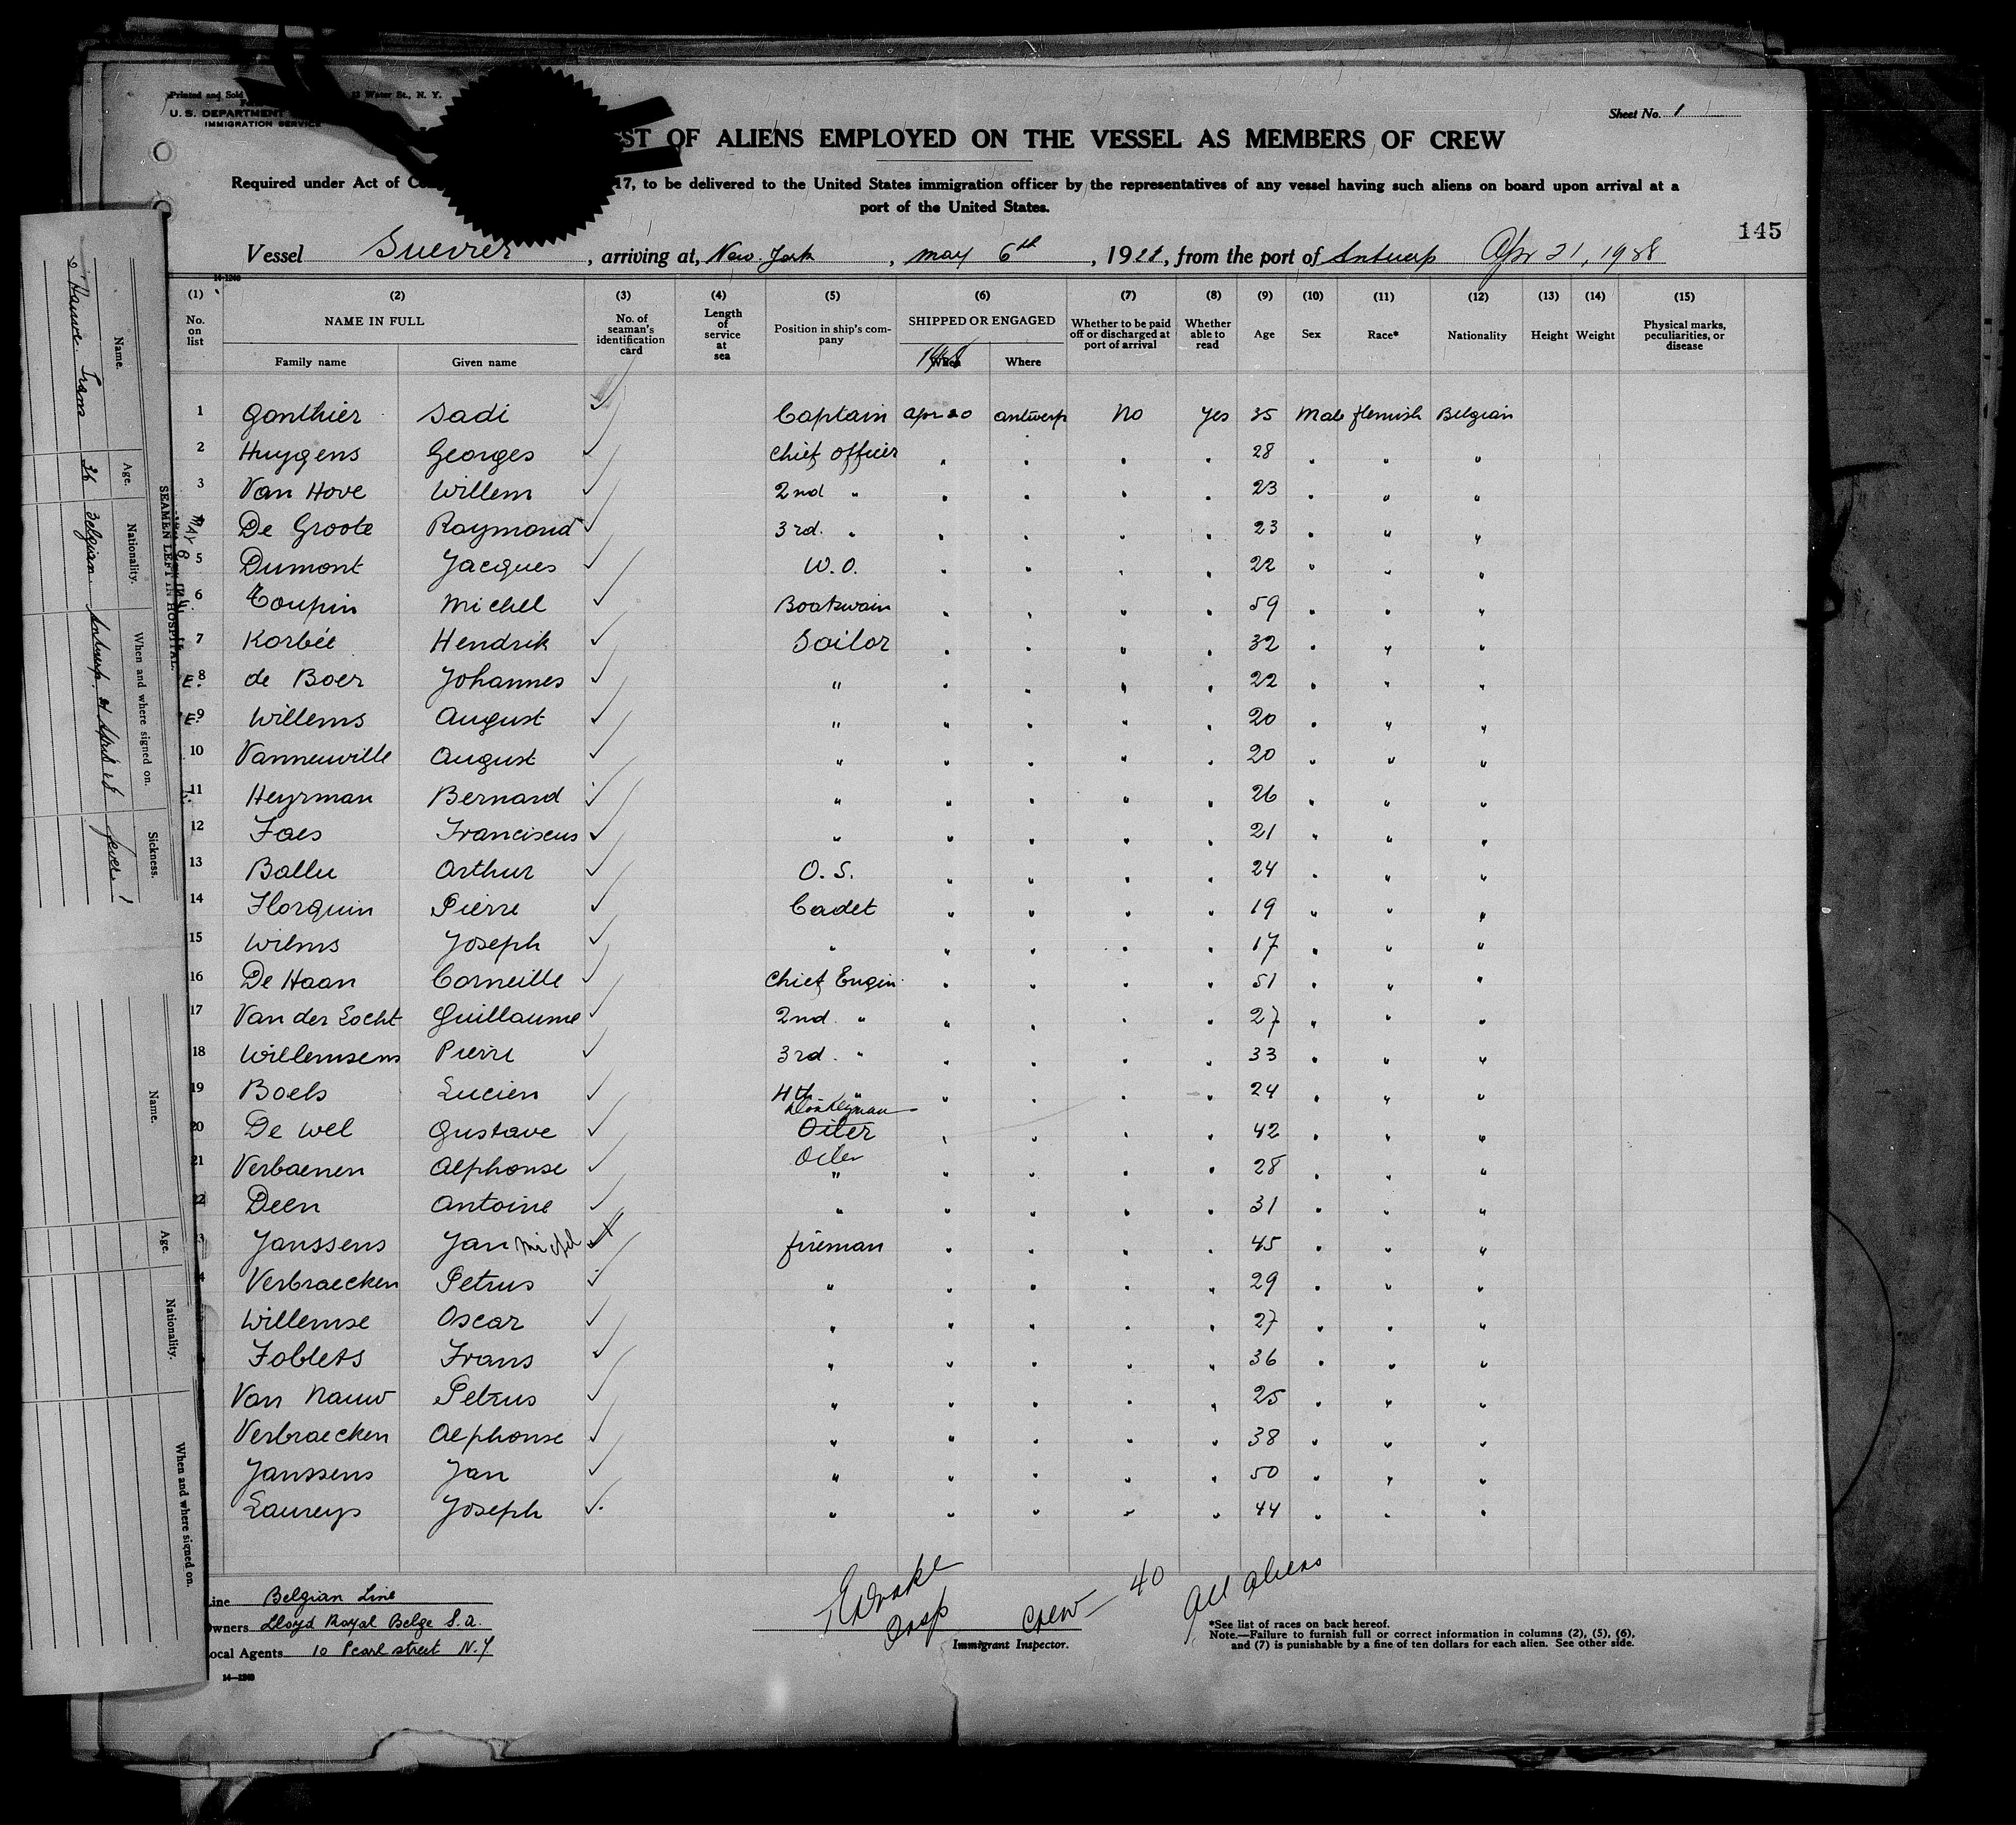 Printed and Sold
Water St., N. Y.
U. S. DEPARTMENT
IMMIGRATION SERVICE
Sheet No. 1
ST OF ALIENS EMPLOYED ON THE VESSEL AS MEMBERS OF CREW
Required under Act of 17, to be delivered to the United States immigration officer by the representatives of any vessel having such aliens on board upon arrival at a
port of the United States.
145
Vessel , arriving at, New York , May 6th , 1928, from the port of Antwerp Apr 21, 1928
14-1240
(1) (2) (3) (4) (5) (6) (7) (8) (9) (10) (11) (12) (13) (14) (15)
No. on list NAME IN FULL No. of seaman's identification card Length of service at sea Position in ship's company SHIPPED OR ENGAGED Whether to be paid off or discharged at port of arrival Whether able to read Age Sex Race* Nationality Height Weight Physical marks, peculiarities, or disease
Family name Given name When Where
1 Gonthier Sadi Captain Apr 20 Antwerp No Yes 35 Male Flemish Belgian
2 Huygens Georges Chief Officer " " " " 28 " " "
3 Van Hove Willem 2nd " " " " " 23 " " "
De Groote Raymond 3rd. " " " " " 23 " " "
5 Dumont Jacques W.O. " " " " 22 " " "
6 Toupin Michel Boatswain " " " " 59 " " "
7 Korbée Hendrik Sailor " " " " 32 " " "
E. 8 de Boer Johannes " " " " " 22 " " "
E. 9 Willems August " " " " " 20 " " "
10 Vanneuville August " " " " " 20 " " "
11 Heyrman Bernard " " " " " 26 " " "
12 Faes Franciscus " " " " " 21 " " "
13 Ballu Arthur O.S. " " " " 24 " " "
14 Florquin Pierre Cadet " " " " 19 " " "
15 Wilms Joseph " " " " " 17 " " "
16 De Haan Corneille Chief Engin. " " " " 51 " " "
17 Van der Locht Guillaume 2nd. " " " " " 27 " " "
18 Willemsens Pierre 3rd. " " " " " 33 " " "
19 Boels Lucien 4th " " " " " 24 " " "
Donkeyman
20 De Wel Gustave Oiler " " " " 42 " " "
Oiler
21 Verbaenen Alphonse " " " " " 28 " " "
22 Deen Antoine " " " " " 31 " " "
3 Janssens Jan Michel Fireman " " " " 45 " " "
4 Verbraecken Petrus " " " " " 29 " " "
Willemse Oscar " " " " " 27 " " "
Foblets Frans " " " " " 36 " " "
Van Nauw Petrus " " " " " 25 " " "
Verbraecken Alphonse " " " " " 38 " " "
Janssens Jan " " " " " 50 " " "
Laureys Joseph " " " " " 44 " " "
ine Belgian Line
wners Lloyd Royal Belge S.A.
ocal Agents 10 Pearl street N.Y
14—1240
Insp
Immigrant Inspector.
Crew — 40
All aliens
*See list of races on back hereof.
Note.—Failure to furnish full or correct information in columns (2), (5), (6),
and (7) is punishable by a fine of ten dollars for each alien. See other side.
SEAMEN LEFT IN HOSPITAL.
MAY 6
Name. Age. Nationality. When and where signed on. Sickness.
Frans 26 Belgian Antwerp. 21 April 28 fever
Name. Age. Nationality. When and where signed on.